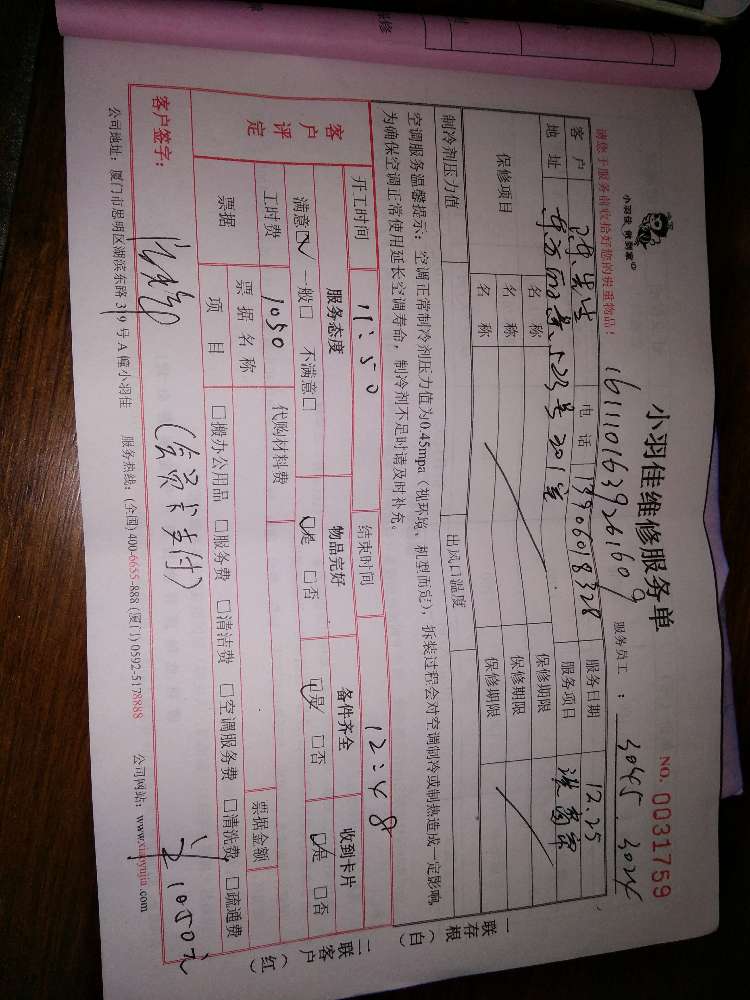 修
请您于服务前收拾好您的贵重物品!
小羽佳 貴到家
小羽佳维修服务单
NO. 0031759
1611101639261609
服务员工: 3045. 3024
客户 先生 电话 13906018328 服务日期 12.25
地址 东方 523号301室 服务项目 洗窗帘
保修项目 名称 保修期限
名称 保修期限
名称 保修期限
制冷剂压力值 出风口温度
空调服务温馨提示:空调正常制冷剂压力值为0.45mpa(视环境、机型而定),拆装过程会对空调制冷或制热造成一定影响,
为确保空调正常使用延长空调寿命,制冷剂不足时请及时补充。
开工时间 11:50 结束时间 12:48
客户评定 服务态度 物品完好 备件齐全 收到卡片
满意☑ 一般□ 不满意□ ☑是 □否 ☑是 □否 ☑是 □否
工时费 1050 代购材料费
票据 票据名称 票据金额
项目 □搬办公用品 □服务费 □清洁费 □空调服务费 □清洗费 □疏通费
客户签字: (会员卡支付) ¥1050元
公司地址:厦门市思明区湖滨东路319号A幢小羽佳 服务热线:(全国)400-6655-888 (厦门)0592-5178888 公司网站:www.xiaoyujia.com
一联存根(白)
二联客户(红)